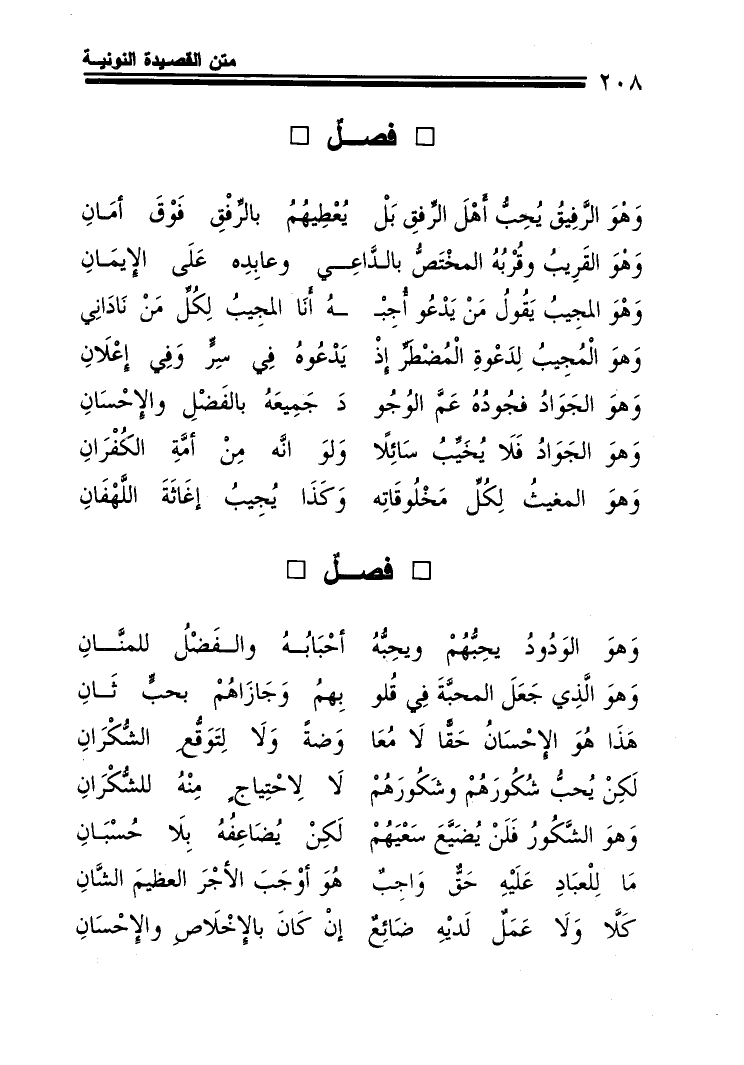 متن القصيدة النونيــة
٢٠٨
□ فصــلٌ □
وَهْوَ الرَّفِيقُ يُحِبُّ أَهْلَ الرِّفقِ بَلْ يُعْطِيهُمُ بالرِّفْقِ فَوْقَ أمَـانِ
وَهْوَ القَرِيبُ وقُرْبُهُ المخْتَصُّ بالـدَّاعِــي وعابِدِه عَلَى الإِيمَـانِ
وَهْوَ المجِيبُ يَقُولُ مَنْ يَدْعُو أُجِبْـ ـهُ أنَا المجِيبُ لِكُلِّ مَنْ نَادَانِي
وَهوَ الْمُجِيبُ لِدَعْوةِ الْمُضْطَرِّ إذْ يَدْعُوهُ فِي سِرٍّ وَفِي إعْلَانِ
وَهوَ الجَوَادُ فجُودُهُ عَمَّ الوُجُو دَ جَمِيعَهُ بالفَضْلِ والإِحْسَانِ
وَهوَ الجَوَادُ فَلَا يُخَيِّبُ سَائِلًا وَلَو انَّه مِنْ أمَّةِ الكُفْرَانِ
وَهوَ المغيثُ لِكُلِّ مَخْلُوقَاتِه وَكَذَا يُجِيبُ إغَاثَةَ اللَّهْفَانِ
□ فصــلٌ □
وَهوَ الوَدُودُ يحِبُّهُمْ ويحِبُّهُ أحْبَابُــهُ والــفَضْلُ للمنَّــانِ
وَهوَ الَّذِي جَعَلَ المحبَّةَ فِي قُلو بِهِمُ وَجَازَاهُمْ بحبٍّ ثَــانِ
هَذَا هُوَ الإِحْسَانُ حَقًّا لَا مُعَا وَضةً وَلَا لِتَوَقُّعِ الشُّكْرَانِ
لَكِنْ يُحبُّ شُكُورَهُمْ وشَكُورَهُمْ لَا لِاحْتِياجٍ مِنْهُ للشُّكْرَانِ
وَهوَ الشَّكُورُ فَلَنْ يُضَيِّعَ سَعْيَهُمْ لَكِنْ يُضَاعِفُهُ بِلَا حُسْبَـانِ
مَا لِلْعبَادِ عَلَيْهِ حَقٌّ وَاجِبٌ هُوَ أوْجَبَ الأجْرَ العظيمَ الشَّانِ
كَلَّا وَلَا عَمَلٌ لَديْهِ ضَائِعٌ إنْ كَانَ بالإِخْلَاصِ والإِحْسَانِ